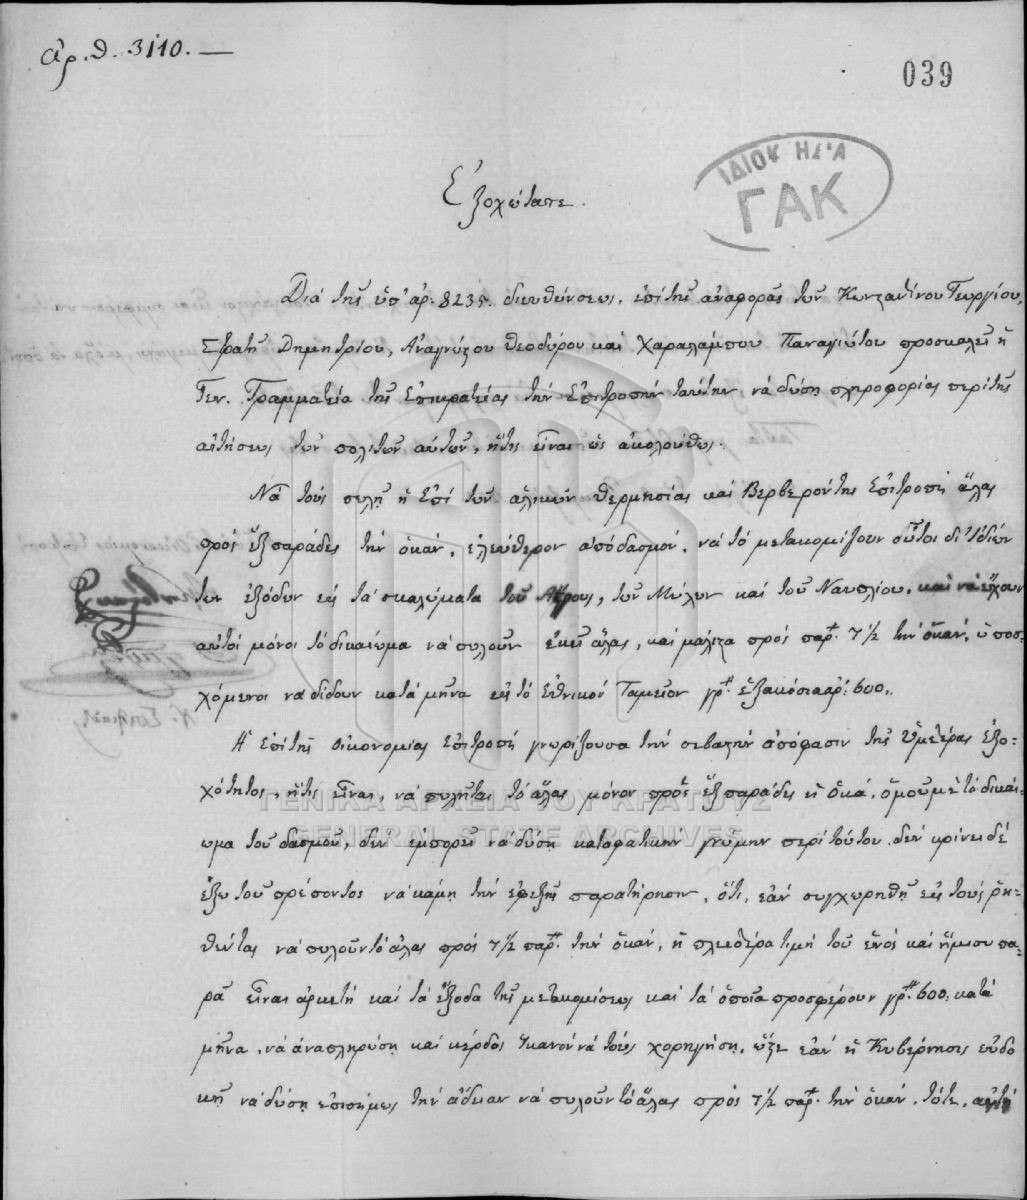 ἀρ.θ. 3110.—
039
ΙΔΙΟΚΤΗΣΙΑ
ΓΑΚ
Ἐξοχώτατε.
Διά τῆς ὑπ' ἀρ. 8235. διευθύνσεως, ἐπί τῆς ἀναφορᾶς τῶν Κωνσταντίνου Γεωργίου,
Στρατῆ Δημητρίου, Ἀναγνώστου Θεοδώρου καί Χαραλάμπου Παναγιώτου προσκαλεῖ ἡ
Γεν. Γραμματεία τῆς Ἐπικρατείας τήν Ἐπιτροπήν ταύτην νά δώσῃ πληροφορίας περί τῆς
αἰτήσεως τῶν πολιτῶν αὐτῶν, ἥτις εἶναι ὡς ἀκολούθως.
Νά τούς πωλῇ ἡ ἐπί τῶν ἁλικῶν Θερμησίας καί Βερβερόντης Ἐπιτροπή ἅλας
πρός ἕξ παράδες τήν ὀκάν, ἐλεύθερον ἀπό δασμόν, νά τό μετακομίζουν οὗτοι δι' ἰδίων
των ἐξόδων εἰς τά σκαλώματα τοῦ Ἄργους, τῶν Μύλων καί τοῦ Ναυπλίου, καί νά ἔχουν
αὐτοί μόνοι τό δικαίωμα νά πωλοῦν ἐκεῖ ἅλας, καί μάλιστα πρός παρ. 7 1/2 τήν ὀκάν, ὑποσ-
χόμενοι νά δίδουν κατά μῆνα εἰς τό Ἐθνικόν Ταμεῖον γρ. ἑξακόσια ἀρ: 600.
Ἡ ἐπί τῆς Οἰκονομίας Ἐπιτροπή γνωρίζουσα τήν σεβαστήν ἀπόφασιν τῆς Ὑμετέρας Ἐξο-
χότητος, ἥτις εἶναι, νά πωλῆται τό ἅλας μόνον πρός ἕξ παράδες ἡ ὀκά, ὁμοῦ μέ τό δικαί-
ωμα τοῦ δασμοῦ, δέν ἐμπορεῖ νά δώσῃ καταφατικήν γνώμην περί τούτου. δέν κρίνει δέ
ἔξω τοῦ πρέποντος νά κάμῃ τήν ἐφεξῆς παρατήρησιν, ὅτι, ἐάν συγχωρηθῇ εἰς τούς ῥη-
θέντας νά πωλοῦν τό ἅλας πρός 7 1/2 παρ. τήν ὀκάν, ἡ πλειοτέρα τιμή τοῦ ἑνός καί ἥμισυ πα-
ρᾶ εἶναι ἀρκετή καί τά ἔξοδα τῆς μετακομίσεως καί τά ὁποῖα προσφέρουν γρ. 600: κατά
μῆνα, νά ἀναπληρώσῃ καί κέρδος ἱκανόν νά τούς χορηγήσῃ, ὥστε ἐάν ἡ Κυβέρνησις εὐδο-
κῇ νά δώσῃ ἐπισήμως τήν ἄδειαν νά πωλοῦν τό ἅλας πρός 7 1/2 παρ. τήν ὀκάν, τότε, αὐτή
ΓΕΝΙΚΑ ΑΡΧΕΙΑ ΤΟΥ ΚΡΑΤΟΥΣ
GENERAL STATE ARCHIVES